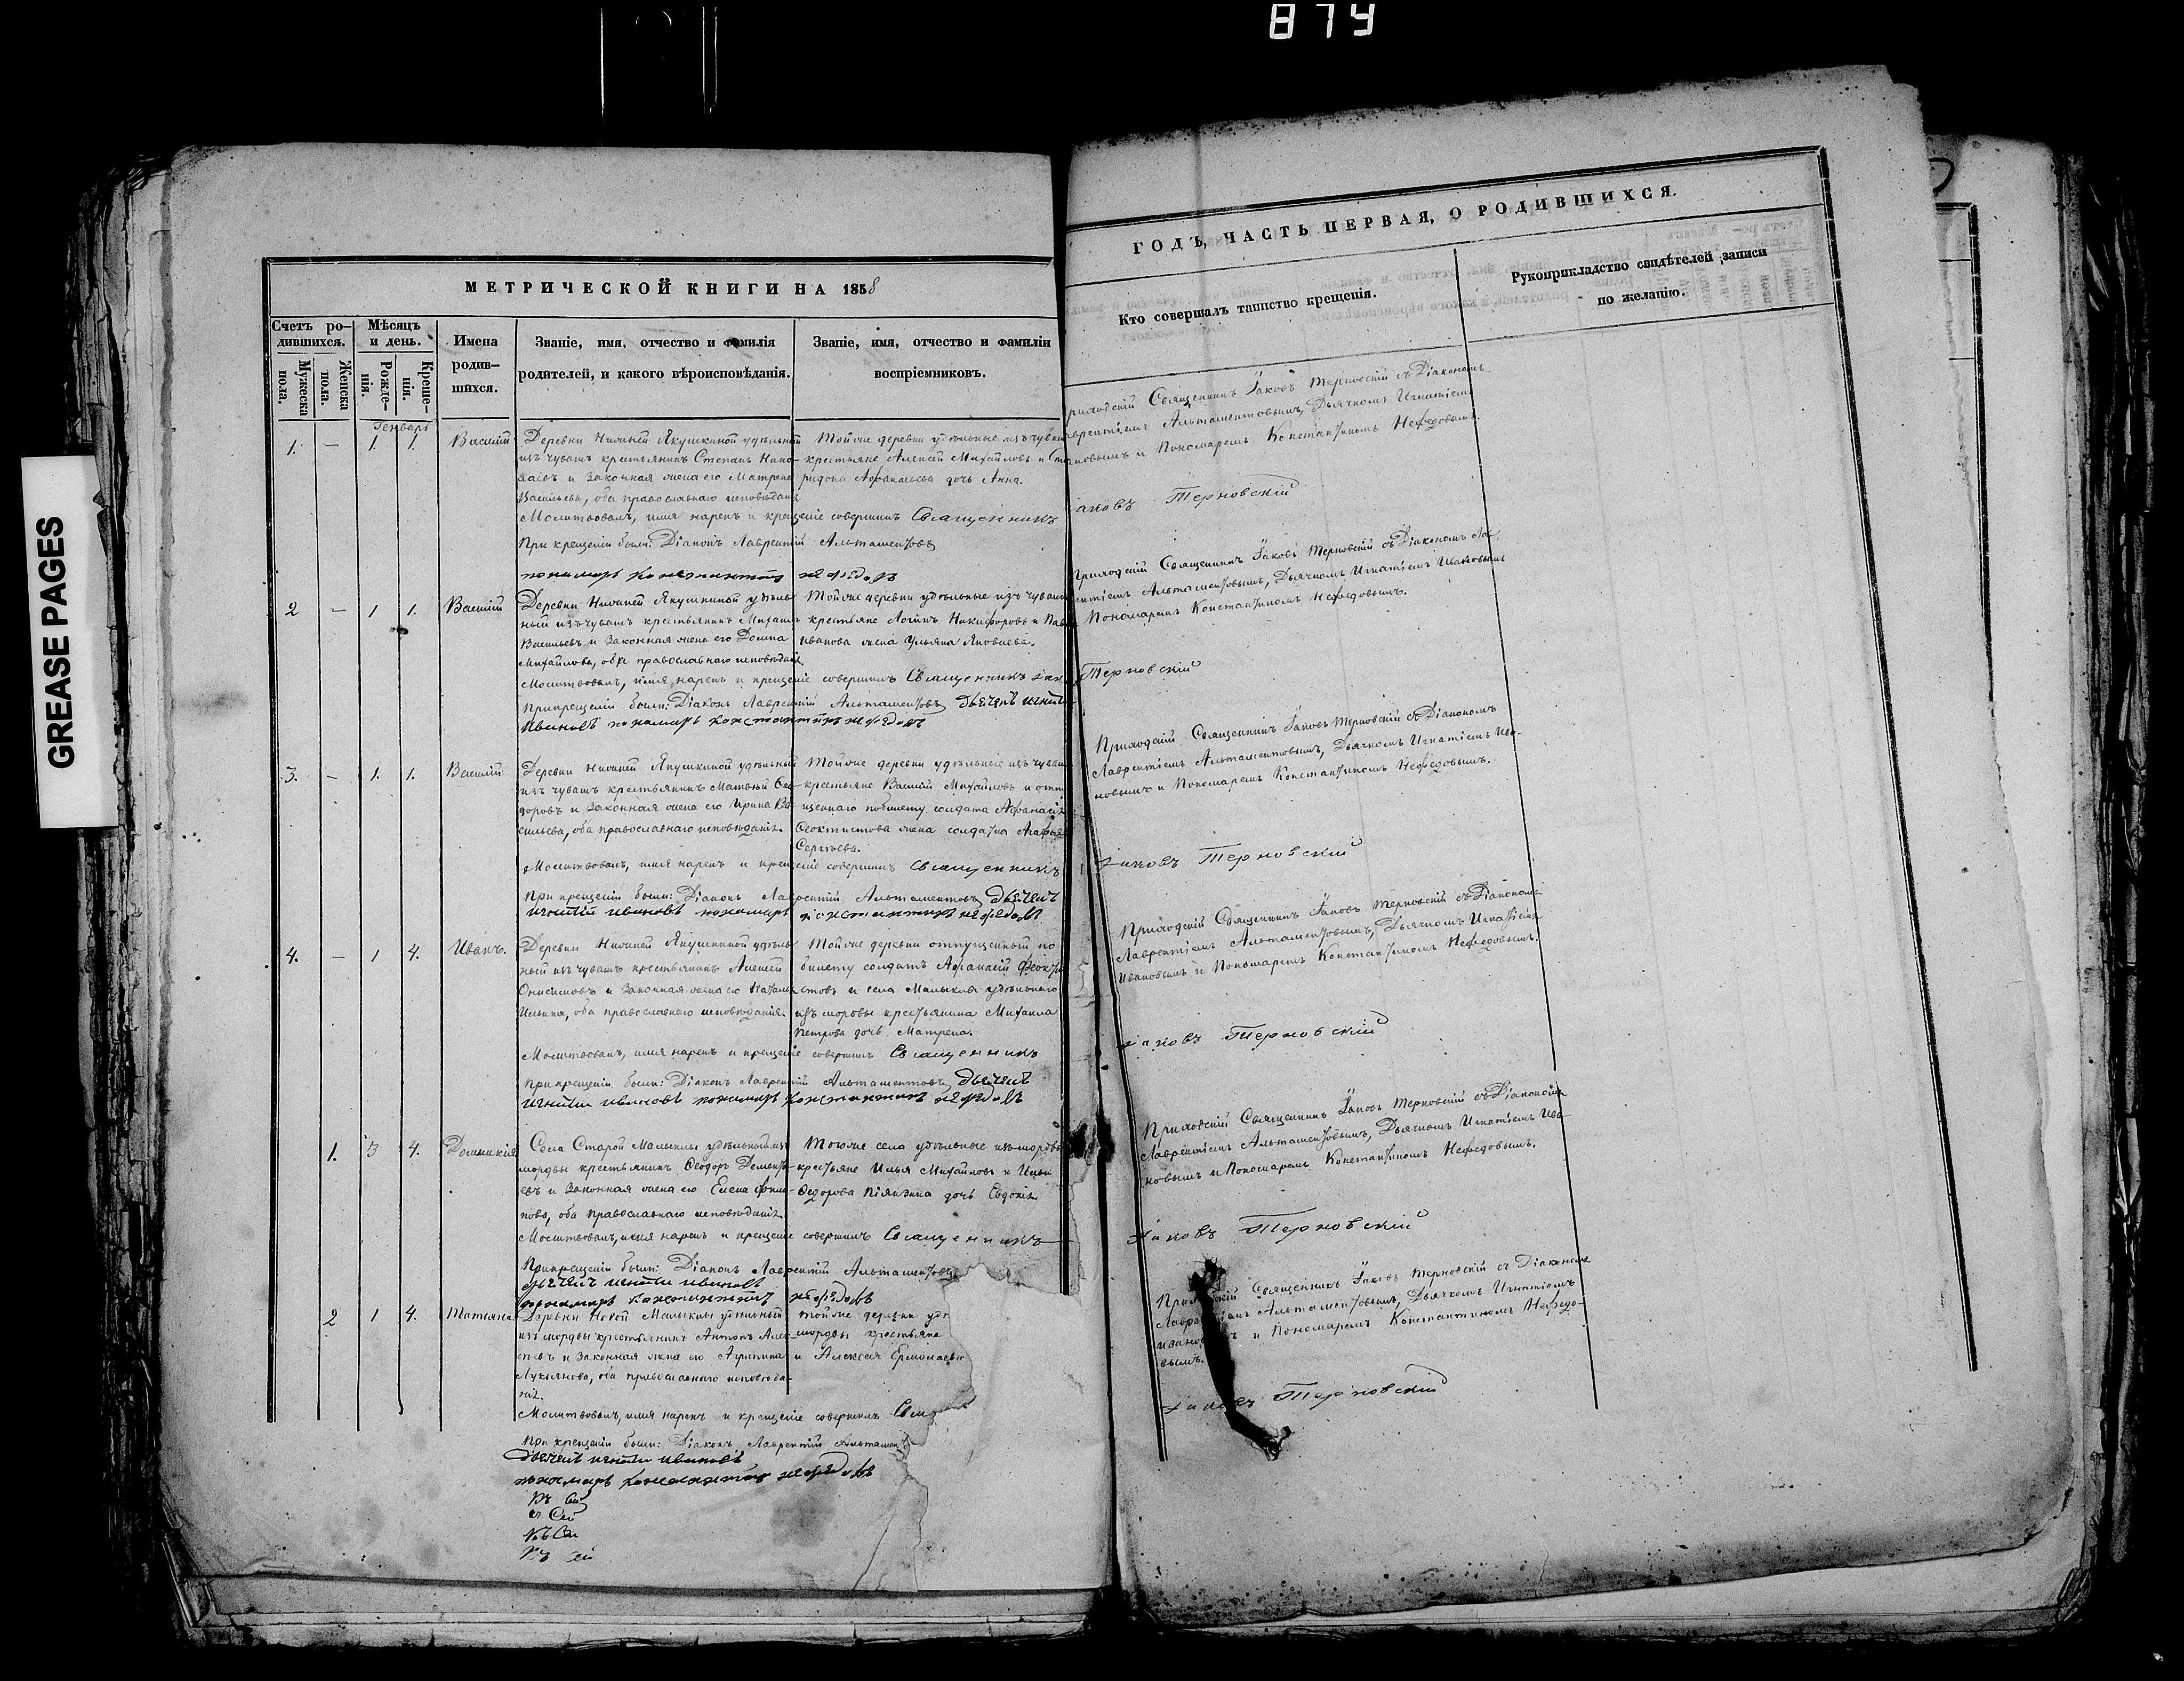 879
GREASE PAGES
МЕТРИЧЕСКОЙ КНИГИ НА 1858
Счетъ ро-
дившихся.
Мужеска
пола.
Женска
пола.
Мѣсяцъ
и день.
Рожде-
нія.
Креще-
нія.
Имена
родив-
шихся.
Званіе, имя, отчество и фамилія
родителей, и какого вѣроисповѣданія.
Званіе, имя, отчество и фамиліи
воспріемниковъ.
Генварь
1. — 1. 1. Василій
Деревни Нижней Якушкиной удѣльный
изъ чувашъ крестьянинъ Степанъ Нико-
лаевъ и законная жена его Матрена
Васильева, оба православнаго исповѣданія
Тойже деревни удѣльные изъ чувашъ
крестьяне Алексей Михайловъ и
Афанасьева дочь Анна.
Молитвовалъ, имя нарекъ и крещеніе совершилъ Священникъ
При крещеніи были: Діаконъ Лаврентій Альтаментовъ
пономарь Констинтинъ нефедовъ
2 — 1 1. Василій
Деревни Нижней Якушкиной удѣль-
ный изъ чувашъ крестьянинъ Михаилъ
Васильевъ и законная жена его Домна
Михайлова, оба православнаго исповѣданія
Тойже деревни удѣльные изъ чувашъ
крестьяне Логинъ Никифоровъ и
Иванова жена Ульяна Яковлева.
Молитвовалъ, имя нарекъ и крещеніе совершилъ Священникъ
При крещеніи были: Діаконъ Лаврентій Альтаментовъ дьячекъ
ивановъ пономарь константинъ нефедовъ
3. — 1. 1. Василій
Деревни Нижней Якушкиной удѣльный
изъ чувашъ крестьянинъ Матвѣй Ѳео-
доровъ и законная жена его Ирина Ва-
сильева, оба православнаго исповѣданія.
Тойже деревни удѣльные изъ чувашъ
крестьяне Василій Михайловъ и отпу-
щеннаго по билету солдата Афанасія
Ѳеоктистова жена солдатка Агафья
Сергѣева.
Молитвовалъ, имя нарекъ и крещеніе совершилъ Священникъ
При крещеніи были: Діаконъ Лаврентій Альтаментовъ дьячекъ
игнатій ивановъ пономарь константинъ нефедовъ
4. — 1 4. Иванъ.
Деревни Нижней Якушкиной удѣль-
ный изъ чувашъ крестьянинъ Алексей
Онисимовъ и законная жена его Наталья
Ильина, оба православнаго исповѣданія.
Тойже деревни отпущенный по
билету солдатъ Афанасій Феокти-
стовъ и села Малыклы удѣльнаго
изъ мордвы крестьянина Михаила
Петрова дочь Матрена.
Молитвовалъ, имя нарекъ и крещеніе совершилъ Священникъ
При крещеніи были: Діаконъ Лаврентій Альтаментовъ дьячекъ
ивановъ пономарь константинъ нефедовъ
1. 3 4. Домникія
Села Старой Малыклы удѣльный изъ
мордвы крестьянинъ Ѳеодоръ Деменьть-
евъ и законная жена его Елена Фили-
пова, оба православнаго исповѣданія
Тогоже села удѣльные изъ мордвы
крестьяне Илья Михайловъ и Ильи
Ѳедорова дочь Евдокія
Молитвовалъ, имя нарекъ и крещеніе совершилъ Священникъ
При крещеніи были: Діаконъ Лаврентій Альтаментовъ
дьячекъ ивановъ
пономарь нефедовъ
2 1 4. Татьяна
Деревни Новой Малыклы удѣльный
изъ мордвы крестьянинъ Антонъ Алек-
сѣевъ и законная жена его Агрипина
Лукьянова, оба православнаго исповѣда-
нія.
Тойже деревни уд
мордвы крестьяне
и Алексея Ермолаева
Молитвовалъ, имя нарекъ и крещеніе совершилъ Свя
При крещеніи были: Діаконъ Лаврентій Альтамен
дьячекъ ивановъ
пономарь нефедовъ
Къ Сей
Сей
Къ Сей
Къ Сей
ГОДЪ, ЧАСТЬ ПЕРВАЯ, О РОДИВШИХСЯ.
Кто совершалъ таинство крещенія.
Рукоприкладство свидѣтелей записи
по желанію.
риходскій Священникъ Іаковъ Терновскій съ Діакономъ
аврентіемъ Альтаментовымъ, Дьячкомъ Игнатіемъ
ановымъ и Пономаремъ Константиномъ Нефедовымъ.
аковъ Терновскій
Приходскій Священникъ Іаковъ Терновскій съ Діакономъ Лав-
рентіемъ Альтаментовымъ, Дьячкомъ Игнатіемъ Ивановымъ
Пономаремъ Константиномъ Нефедовымъ.
Терновскій
Приходскій Священникъ Іаковъ Терновскій съ Діакономъ
Лаврентіемъ Альтаментовымъ, Дьячкомъ Игнатіемъ Ива-
новымъ и Пономаремъ Константиномъ Нефедовымъ.
Іаковъ Терновскій
Приходскій Священникъ Іаковъ Терновскій съ Діакономъ
Лаврентіемъ Альтаментовымъ, Дьячкомъ Игнатіемъ
Ивановымъ и Пономаремъ Константиномъ Нефедовымъ.
Іаковъ Терновскій
Приходскій Священникъ Іаковъ Терновскій съ Діакономъ
Лаврентіемъ Альтаментовымъ, Дьячкомъ Игнатіемъ Ива-
новымъ и Пономаремъ Константиномъ Нефедовымъ.
Іаковъ Терновскій
Прих скій Священникъ Іаковъ Терновскій съ Діакономъ
Лавре іемъ Альтаментовымъ, Дьячкомъ Игнатіемъ
Ивано ъ и Пономаремъ Константиномъ Нефедо-
вымъ.
Іаковъ Терновскій